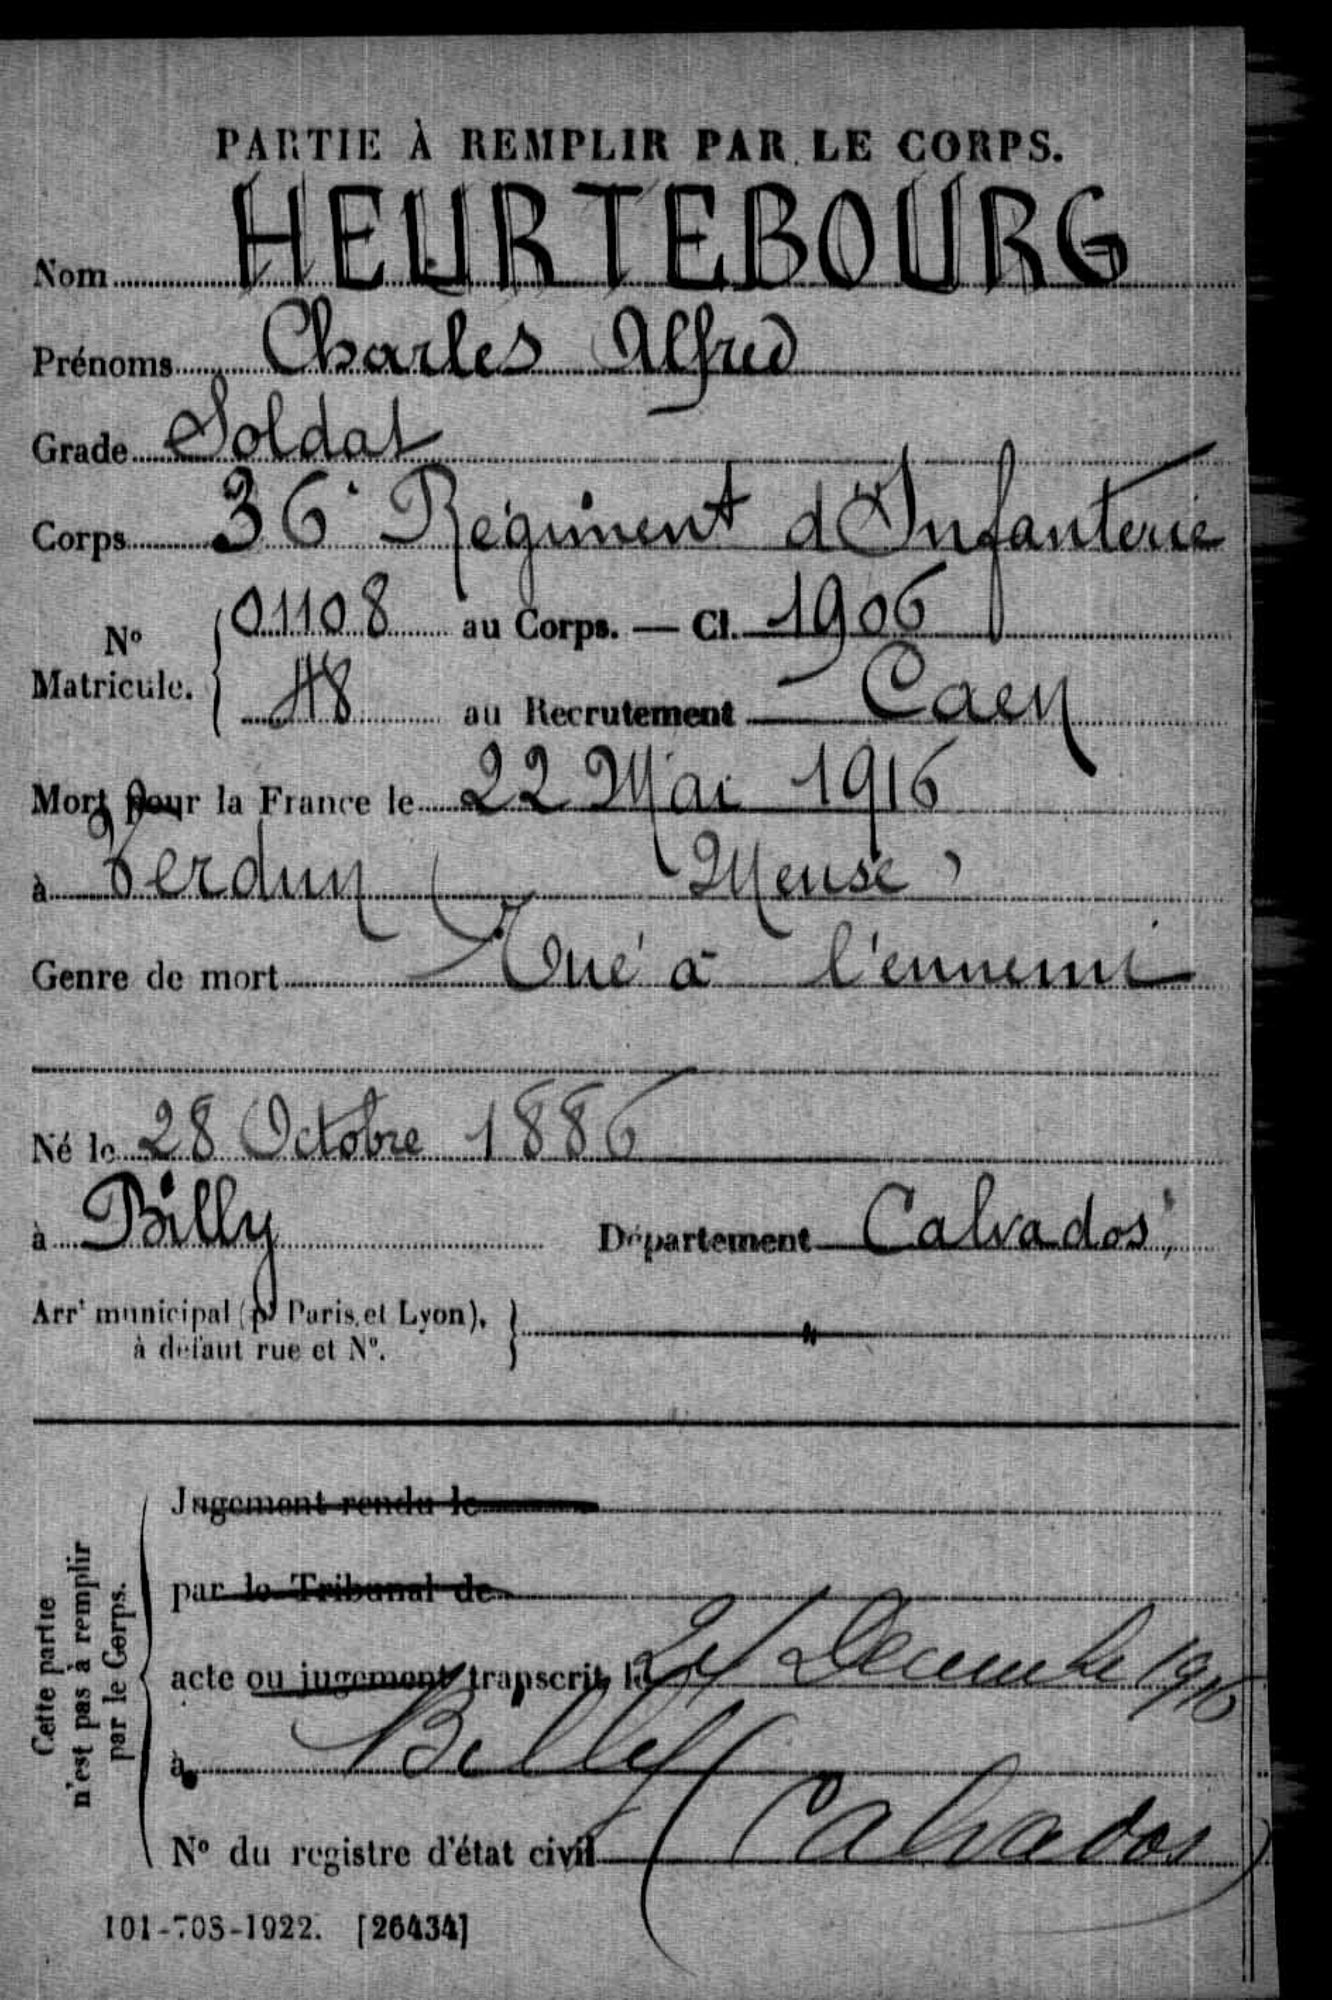 PARTIE À REMPLIR PAR LE CORPS.
Nom HEURTEBOURG
Prénoms Charles Alfred
Grade Soldat
Corps 36e Régiment d'Infanterie
N° Matricule. { 01108 au Corps. — Cl. 1906
48 au Recrutement — Caen
Mort pour la France le 22 Mai 1916
à Verdun ( Meuse )
Genre de mort Tué à l'ennemi
Né le 28 Octobre 1886
à Billy Département Calvados
Arrt municipal (pr Paris et Lyon), }
à défaut rue et N°.
Cette partie
n'est pas à remplir
par le Corps.
Jugement rendu le
par le Tribunal de
acte ou jugement transcrit le Décembre 1916
à Billy
N° du registre d'état civil ( Calvados )
101-708-1922. [26434]